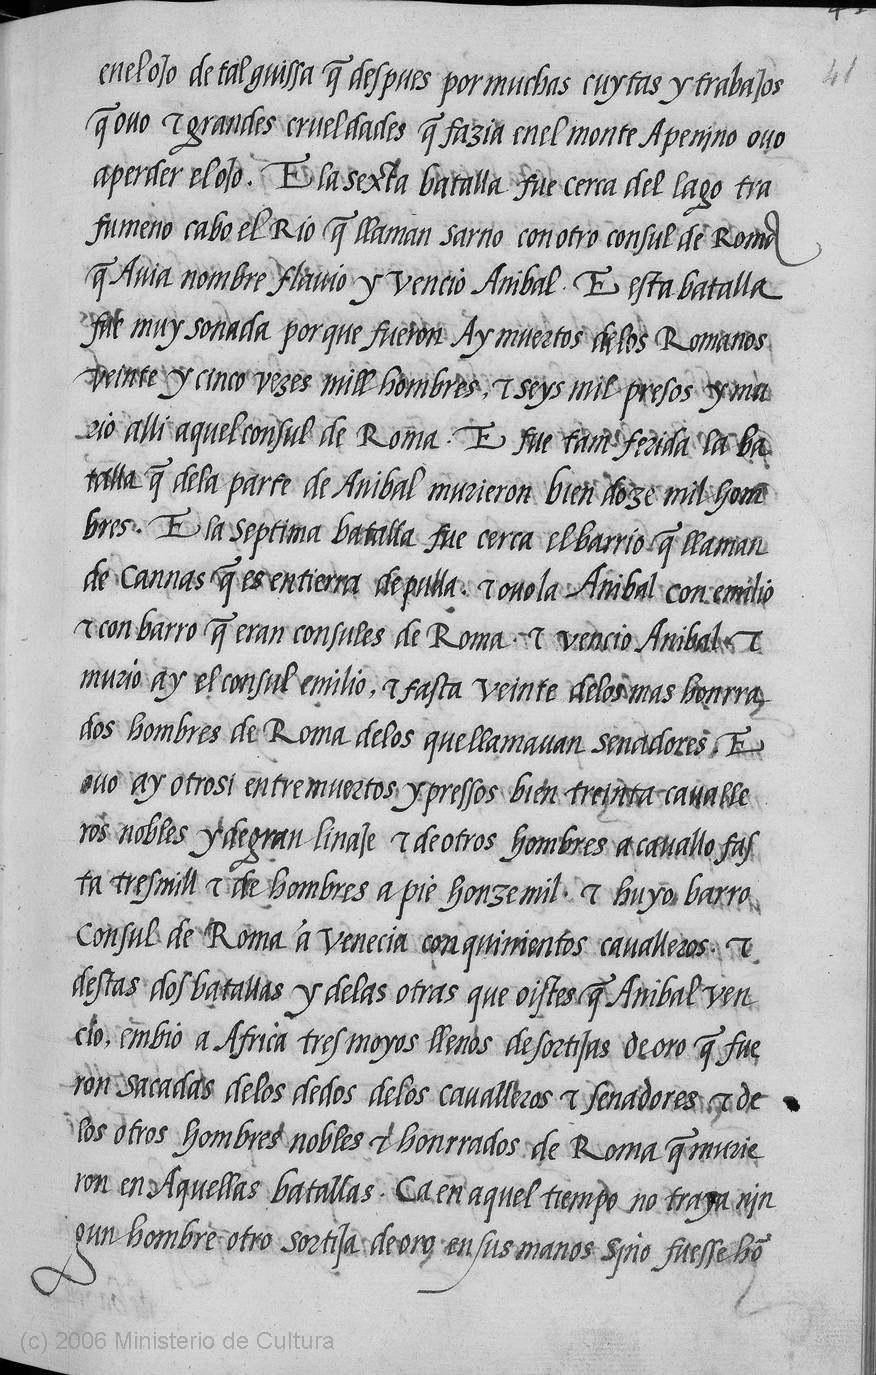 41
enel ojo de tal guissa q̃ despues por muchas cuytas y trabajos
q̃ ovo ⁊ grandes crueldades q̃ fazia enel monte Apenino ovo
aperder el ojo. E la sexta batalla fue cerca del lago tra
fumeno cabo el Rio q̃ llaman sarno con otro consul de Roma
q̃ Auia nombre flauio y Vencio Anibal. E esta batalla
fue muy sonada porque fueron Ay muertos delos Romanos
veinte y cinco vezes mill hombres, ⁊ seys mil presos y mu
rio alli aquel consul de Roma. E fue tam ferida la ba
talla q̃ dela parte de Anibal murieron bien doze mil hom
bres. E la septima batalla fue cerca el barrio q̃ llaman
de Cannas q̃ es entierra de pulla. ⁊ ouola Anibal con emilio
⁊ con barro q̃ eran consules de Roma. ⁊ vencio Anibal. ⁊
murio ay el consul emilio, ⁊ fasta veinte delos mas honrra
dos hombres de Roma delos que llamauan senadores. E
ouo ay otrosi entre muertos y pressos bien treinta caualle
ros nobles y de gran linaje ⁊ de otros hombres a cauallo fas
ta tres mill ⁊ de hombres a pie honze mil. ⁊ huyo barro
Consul de Roma à Venecia con quinientos caualleros. ⁊
destas dos batallas y delas otras que oistes q̃ Anibal ven
cio, embio a Africa tres moyos llenos de sortijas de oro q̃ fue
ron sacadas delos dedos delos caualleros ⁊ senadores ⁊ de
los otros hombres nobles ⁊ honrrados de Roma q̃ murie
ron en Aquellas batallas. Ca en aquel tiempo no traya nin
gun hombre otro sortija de oro en sus manos sino fuesse hõ
(c) 2006 Ministerio de Cultura